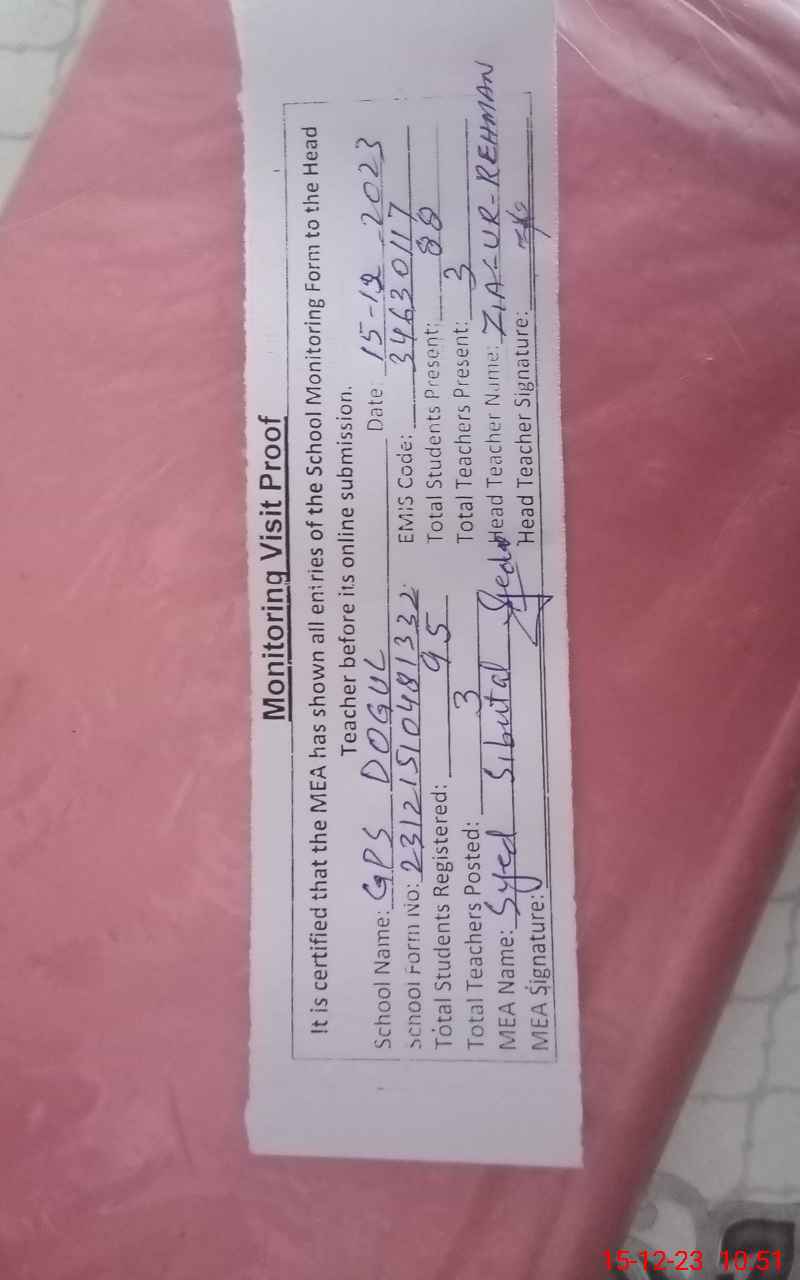 Monitoring Visit Proof
It is certified that the MEA has shown all entries of the School Monitoring Form to the Head
Teacher before its online submission.
School Name: GPS DOGUL Date: 15-12-2023
School Form No: 23121510481332 EMIS Code: 34630117
Total Students Registered: 95 Total Students Present: 88
Total Teachers Posted: 3 Total Teachers Present: 3
MEA Name: Syed Sibutal Head Teacher Name: ZIA-UR-REHMAN
MEA Signature: Head Teacher Signature:
15-12-23 10:51